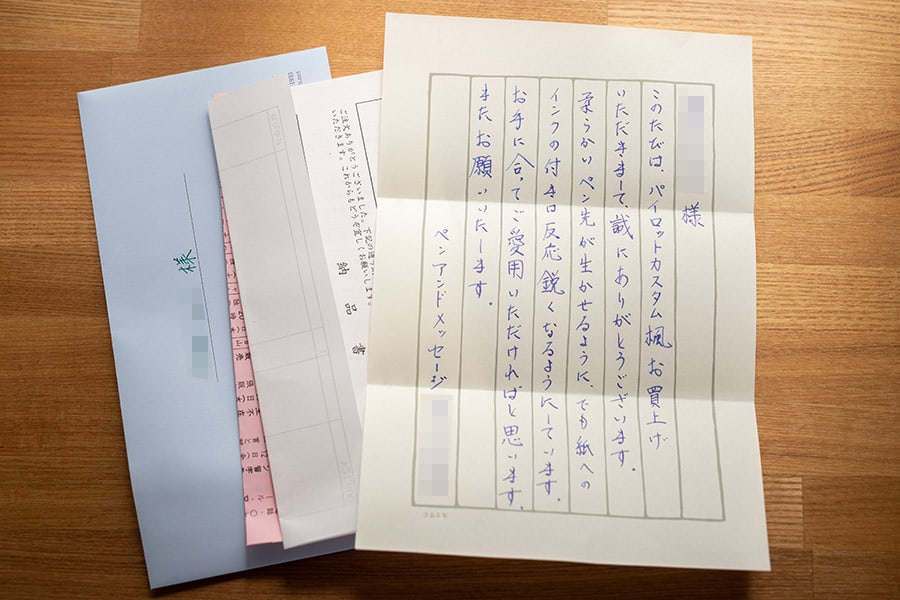 様
このたびは、パイロットカスタム楓お買上げ
いただきまして、誠にありがとうございます。
柔らかいペン先が生かせるように、でも紙への
インクの付きは反応鋭くなるようにしています。
お手に合ってご愛用いただければと思います。
またお願いいたします。
ペンアンドメッセージ
納品書
ご注文ありがとうございました。下記の通り
いただきます。これからもどうぞ宜しくお願いします。
様